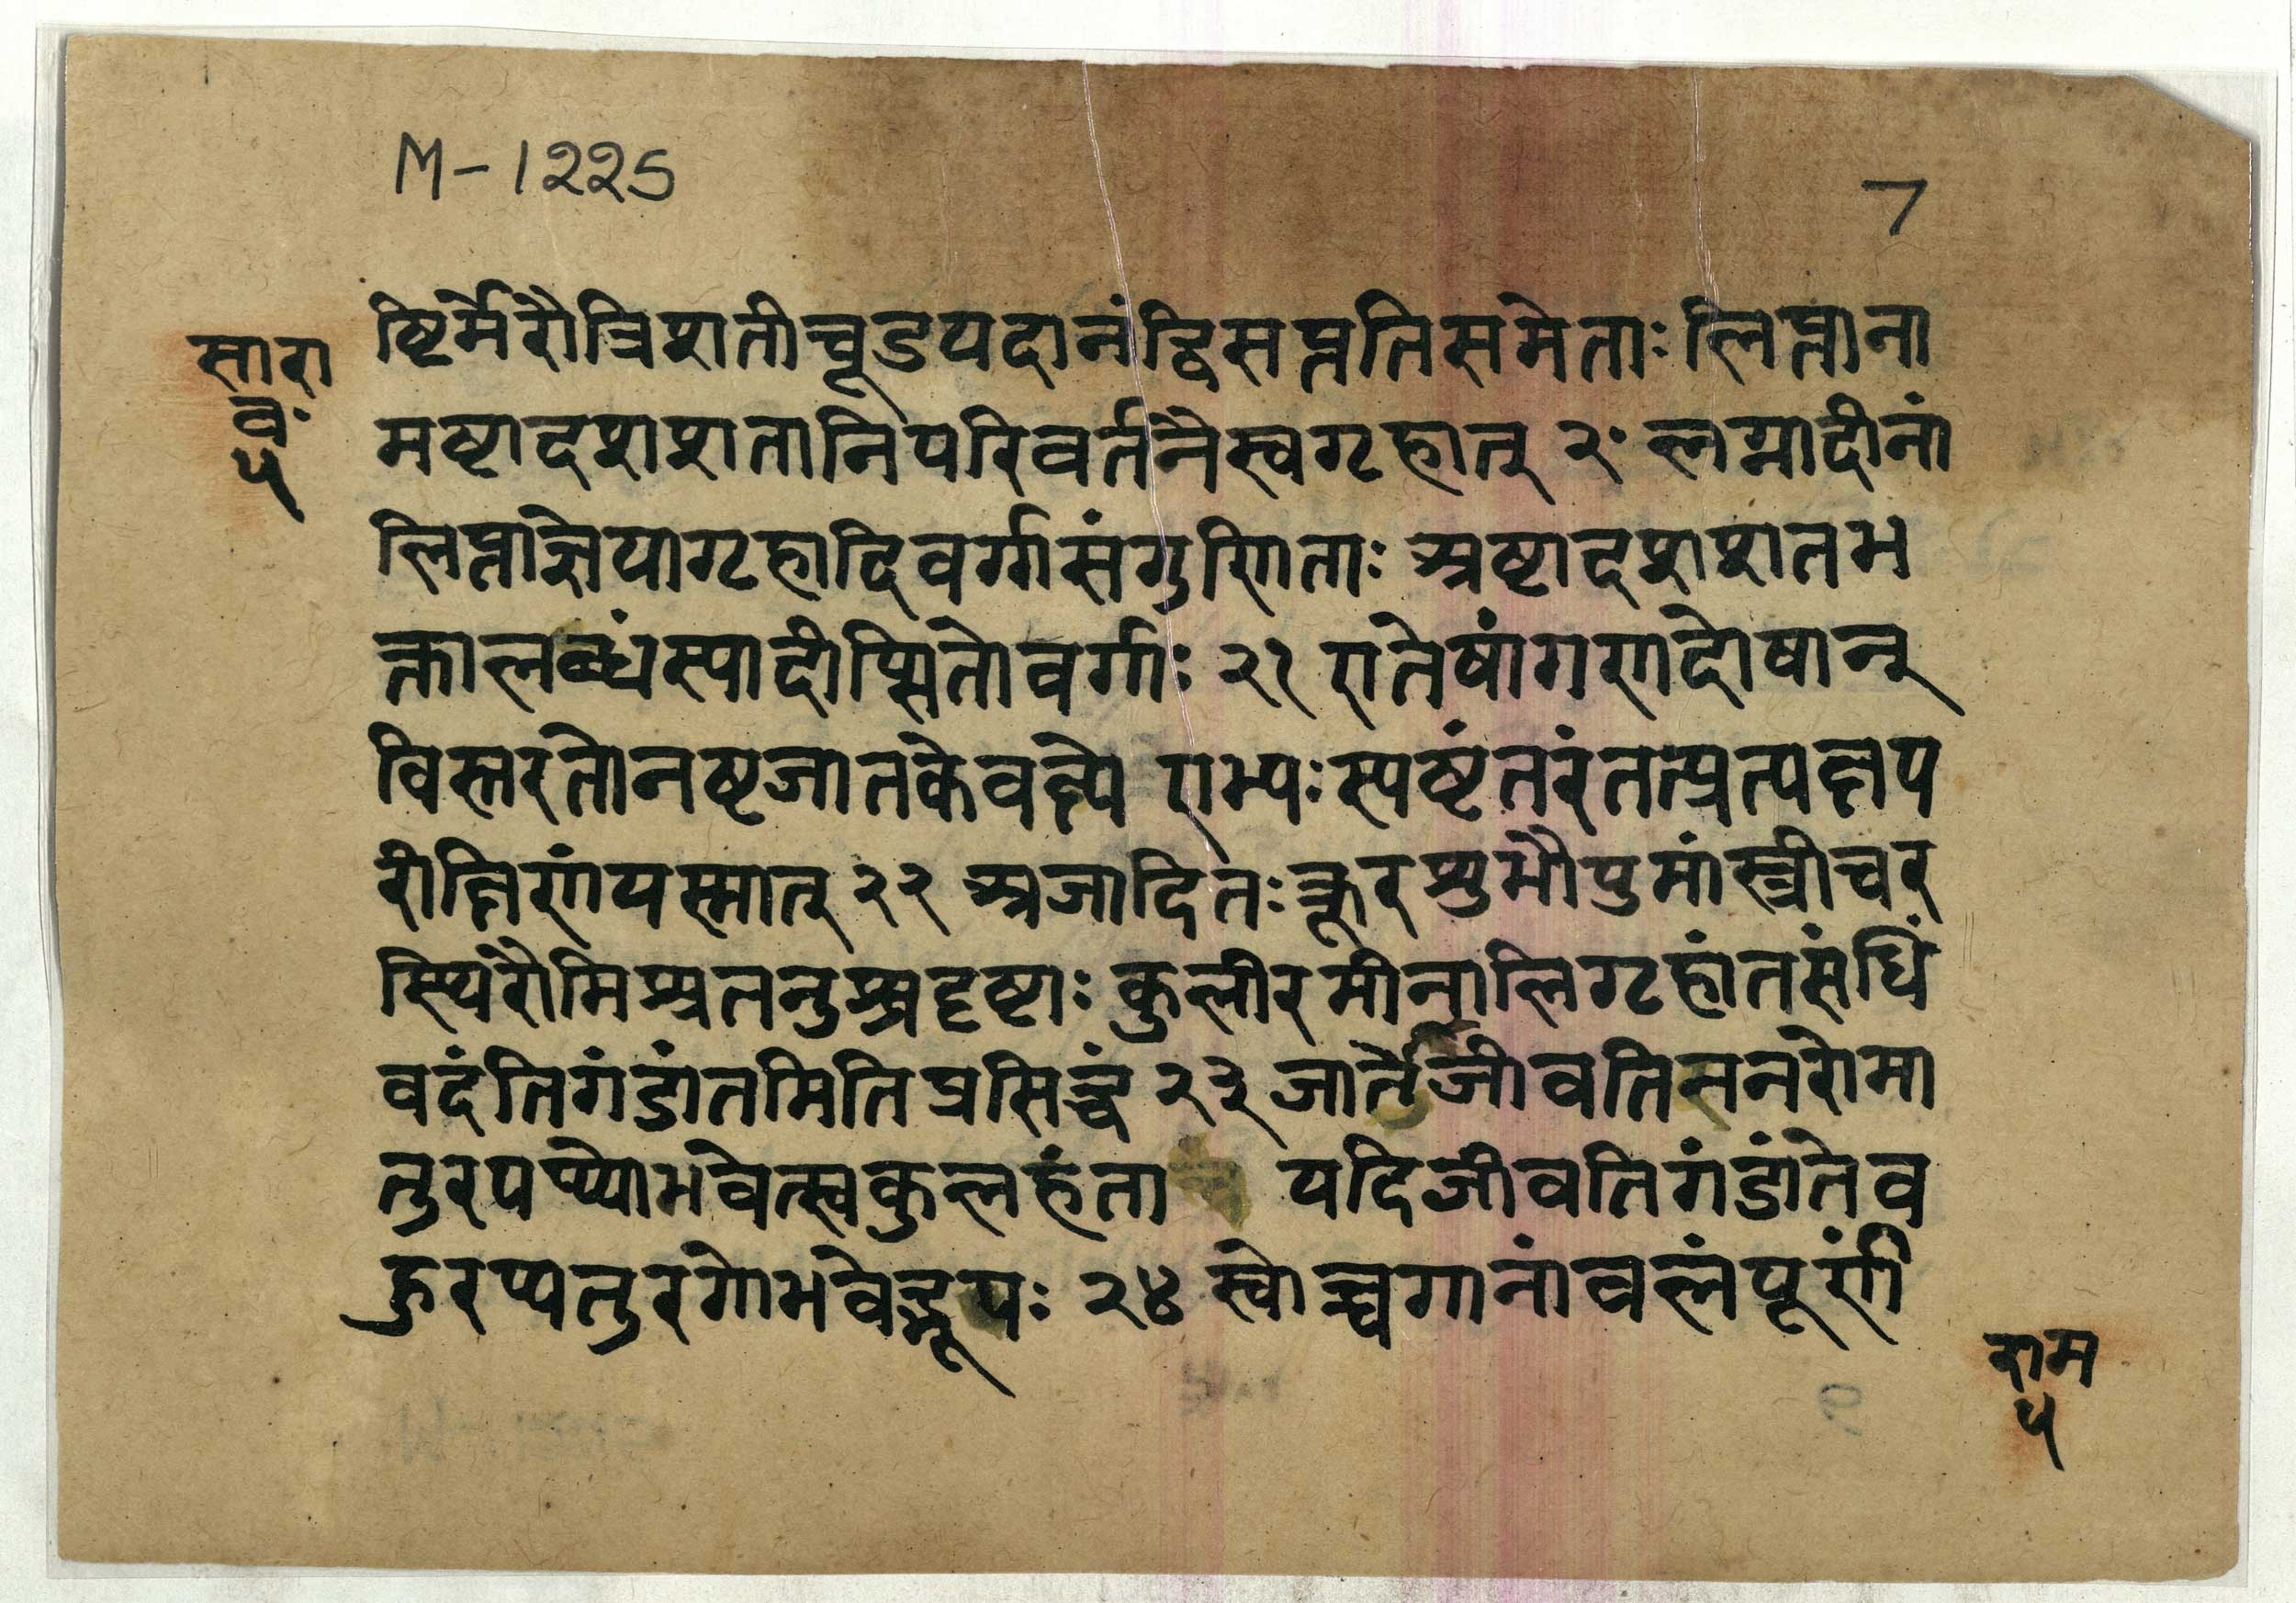 M-1225
7
ष्टिर्मेरौत्रिशतीचूडपदानंद्विसप्ततिसमेताः लिप्ताना
सारा
वं
५
मष्टादशशतानिपरिवर्तनैस्वगृहात् २॰ लग्नादीनां
लिप्ताज्ञेयागृहादिवर्गसंगुणिताः अष्टादशशतभ
क्तालब्धंस्यादीप्सितोवर्गः २१ एतेषांगुणदोषान्
विस्तरतोनष्टजातकेवक्ष्ये एभ्यःस्पष्टंतरंतत्प्रत्यक्षप
रीक्षिणंयस्मात् २२ अजादितःक्रूरशुभौपुमांस्त्रीचर
स्थिरौमिश्रतनुश्चदृष्टाः कुलीरमीनालिगृहांतसंधिं
वदंतिगंडांतमितिप्रसिद्धं २३ जातैजीवतिसनरोमा
तुरपथ्योभवेत्स्वकुलहंता यदिजीवतिगंडांतेव
हुरप्यतुरगोभवेद्भूपः २४ स्वोच्चगानांबलंपूर्ण
राम
५